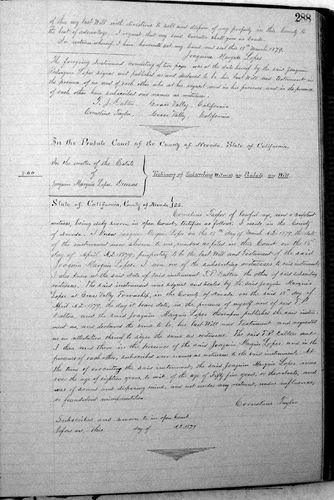 288
of this my last Will with directions to sell and dispose of my property in this County to
the best of advantage. I request that my said Executor shall give no bonds.
In witness whereof I have hereunto set my hand and seal this 12th March 1879.
Joaquin Marquis Lopes
The foregoing Instrument consisting of two pages was at the date hereof by the said Joaquin
Marquis Lopes signed and published as and declared to be his last Will and Testament in
the presence of us and of each other who at his request and in his presence and in the presence
of each other have subscribed our names as witnesses.
Grass Valley California
Cornelius Taylor, Grass Valley California
In the Probate Court of the County of Nevada, State of California
In the matter of the Estate
of
Joaquin Marquis Lopes Deceased
Testimony of Subscribing Witness on Probate of Will
State of California, County of Nevada } SS.
Cornelius Taylor of lawful age, and a subscribing
witness, being duly sworn in open Court, testifies as follows. I reside in the County
of Nevada. I knew Joaquin Marquis Lopes on the 12th day of March A.D. 1879, the date of
the instrument now shown to me marked as filed in this Court on the 15th
day of April A.D. 1879, purporting to be the last Will and Testament of the said
Joaquin Marquis Lopes. I am one of the subscribing witnesses to said instrument
I also knew at the said date of said instrument the other of said subscribing
witnesses. The said instrument was signed and sealed by the said Joaquin Marquis
Lopes at Grass Valley Township, in the County of Nevada on the 12th day of
March A.D. 1879, the day it bears date, in the presence of myself and of
and the said Joaquin Marquis Lopes thereupon published the said instru-
ment as, and declared the same to be his last Will and Testament and requested
us in attestation thereof to sign the same as witnesses. The said
I then and there in the presence of the said Joaquin Marquis Lopes and in the
presence of each other, subscribed our names as witnesses to the said instrument. At
the time of executing the said instrument, the said Joaquin Marquis Lopes was
over the age of eighteen years, to wit, of the age of Fifty five years, or thereabouts, and
was of sound and disposing mind, and not under any restraint, undue influence,
or fraudulent misrepresentation.
Cornelius Taylor
Subscribed and sworn to in open Court
before me this day of A.D. 1879